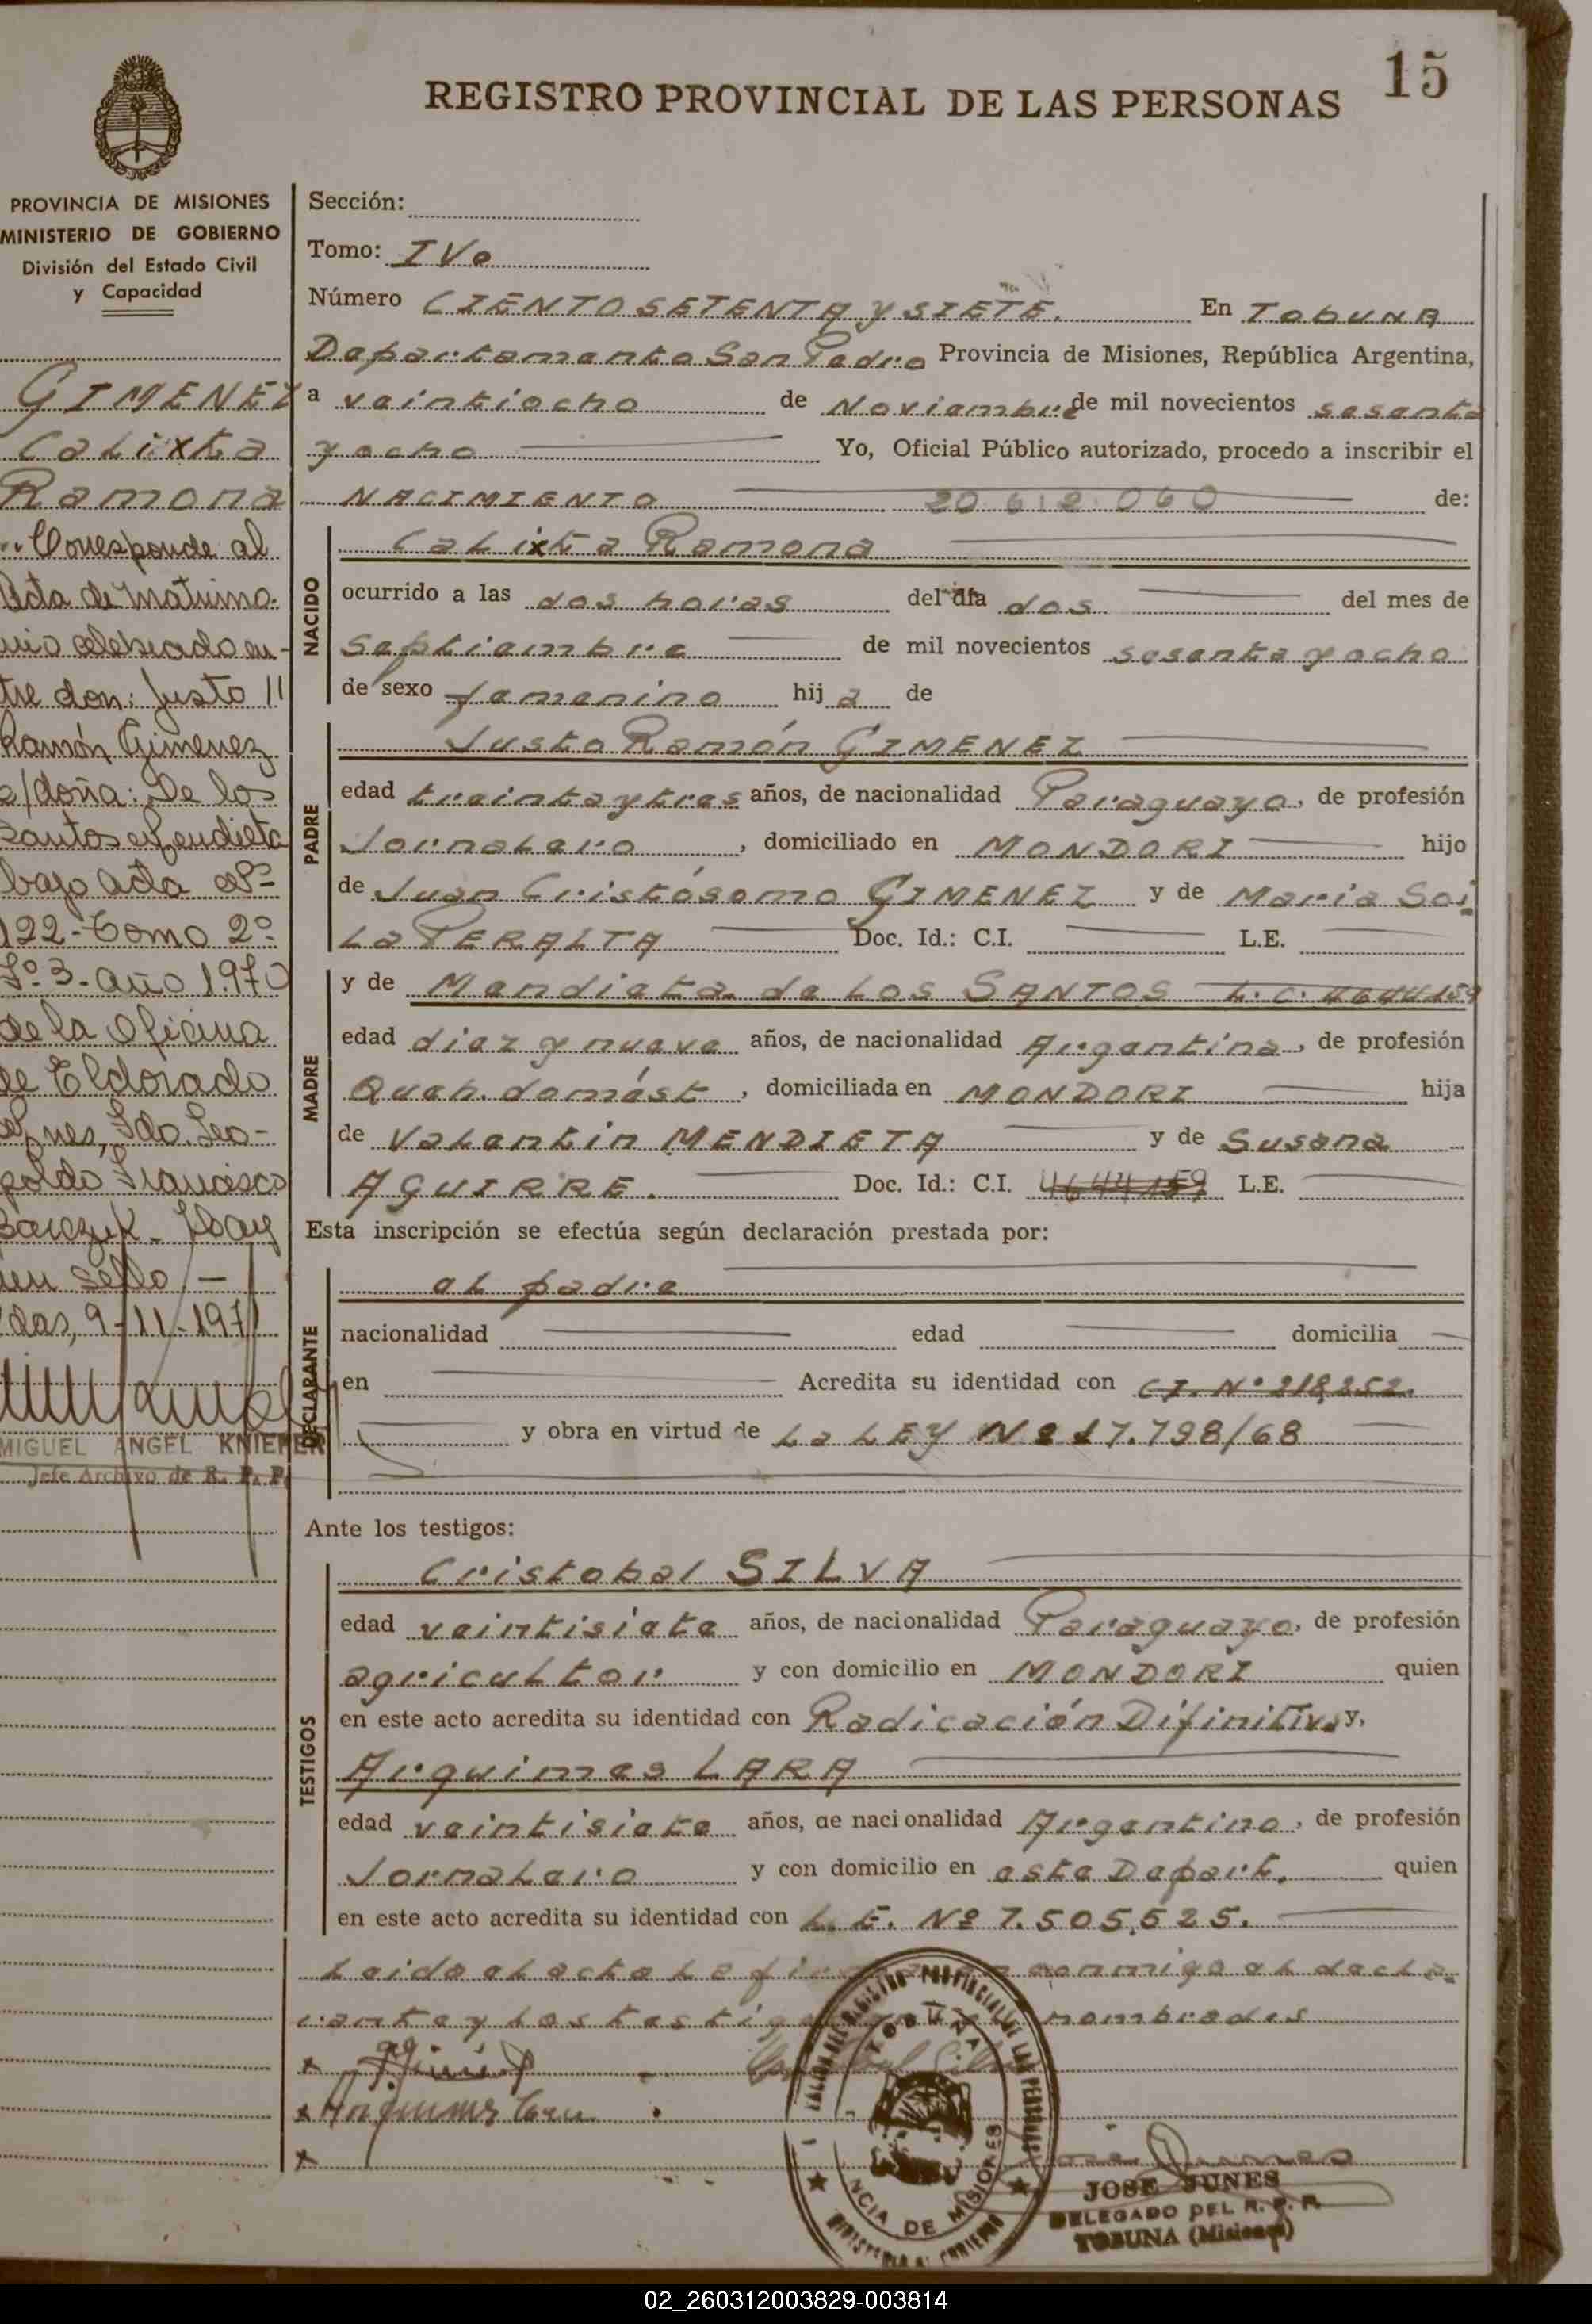 15
REGISTRO PROVINCIAL DE LAS PERSONAS
PROVINCIA DE MISIONES
MINISTERIO DE GOBIERNO
División del Estado Civil
y Capacidad
GIMENEZ
Calixta
Ramona
Corresponde al
Acta de Matrimo-
nio celebrado en-
tre don: Justo
Ramón Gimenez
c/doña: De los
Santos Mendieta
bajo acta Nº
122-Tomo 2º
Fº 3-año 1970
de la Oficina
de Eldorado
Mnes, Fdo. Leo-
poldo Francisco
Barczuk. Hay
un sello.-
das, 9-11-1971
MIGUEL ANGEL KNIEPER
Jefe Archivo de R. P. P.
Sección:
Tomo: IVo
Número CIENTO SETENTA Y SIETE. En TOBUNA
Departamento San Pedro Provincia de Misiones, República Argentina,
a veintiocho de Noviembre de mil novecientos sesenta
y ocho Yo, Oficial Público autorizado, procedo a inscribir el
NACIMIENTO 20.612.060 de:
NACIDO
Calixta Ramona
ocurrido a las dos horas del día dos del mes de
septiembre de mil novecientos sesenta y ocho
de sexo femenino hija de
PADRE
Justo Ramón GIMENEZ
edad treinta y tres años, de nacionalidad Paraguayo, de profesión
Jornalero, domiciliado en MONDORI hijo
de Juan Cristósomo GIMENEZ y de Maria Soi
La PERALTA Doc. Id.: C.I. L.E.
MADRE
y de Mendieta de Los SANTOS L.C. 4644159
edad diez y nueve años, de nacionalidad Argentina, de profesión
Queh. domést, domiciliada en MONDORI hija
de Valentin MENDIETA y de Susana
AGUIRRE. Doc. Id.: C.I. 4644159 L.E.
Esta inscripción se efectúa según declaración prestada por:
DECLARANTE
el padre
nacionalidad edad domicilia
en Acredita su identidad con C.I. Nº 218,252.
y obra en virtud de La LEY Nº 17.798/68
Ante los testigos:
TESTIGOS
Cristobal SILVA
edad veintisiete años, de nacionalidad Paraguayo, de profesión
agricultor y con domicilio en MONDORI quien
en este acto acredita su identidad con Radicación Difinitiva y,
Arquimes LARA
edad veintisiete años, de nacionalidad Argentino, de profesión
Jornalero y con domicilio en este Depart. quien
en este acto acredita su identidad con L.E. Nº 7.505,525.
Leida el acta la conmigo el decla-
rante y los nombrados
TOBUNA
MISIONES
JOSE JUNES
DELEGADO DEL R. P. P.
TOBUNA (Misiones)
02_260312003829-003814